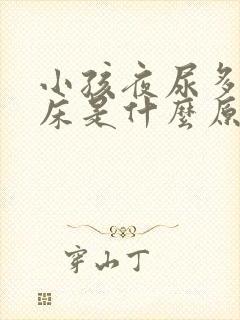 小孩夜尿多
床是什麽原
穿山丁